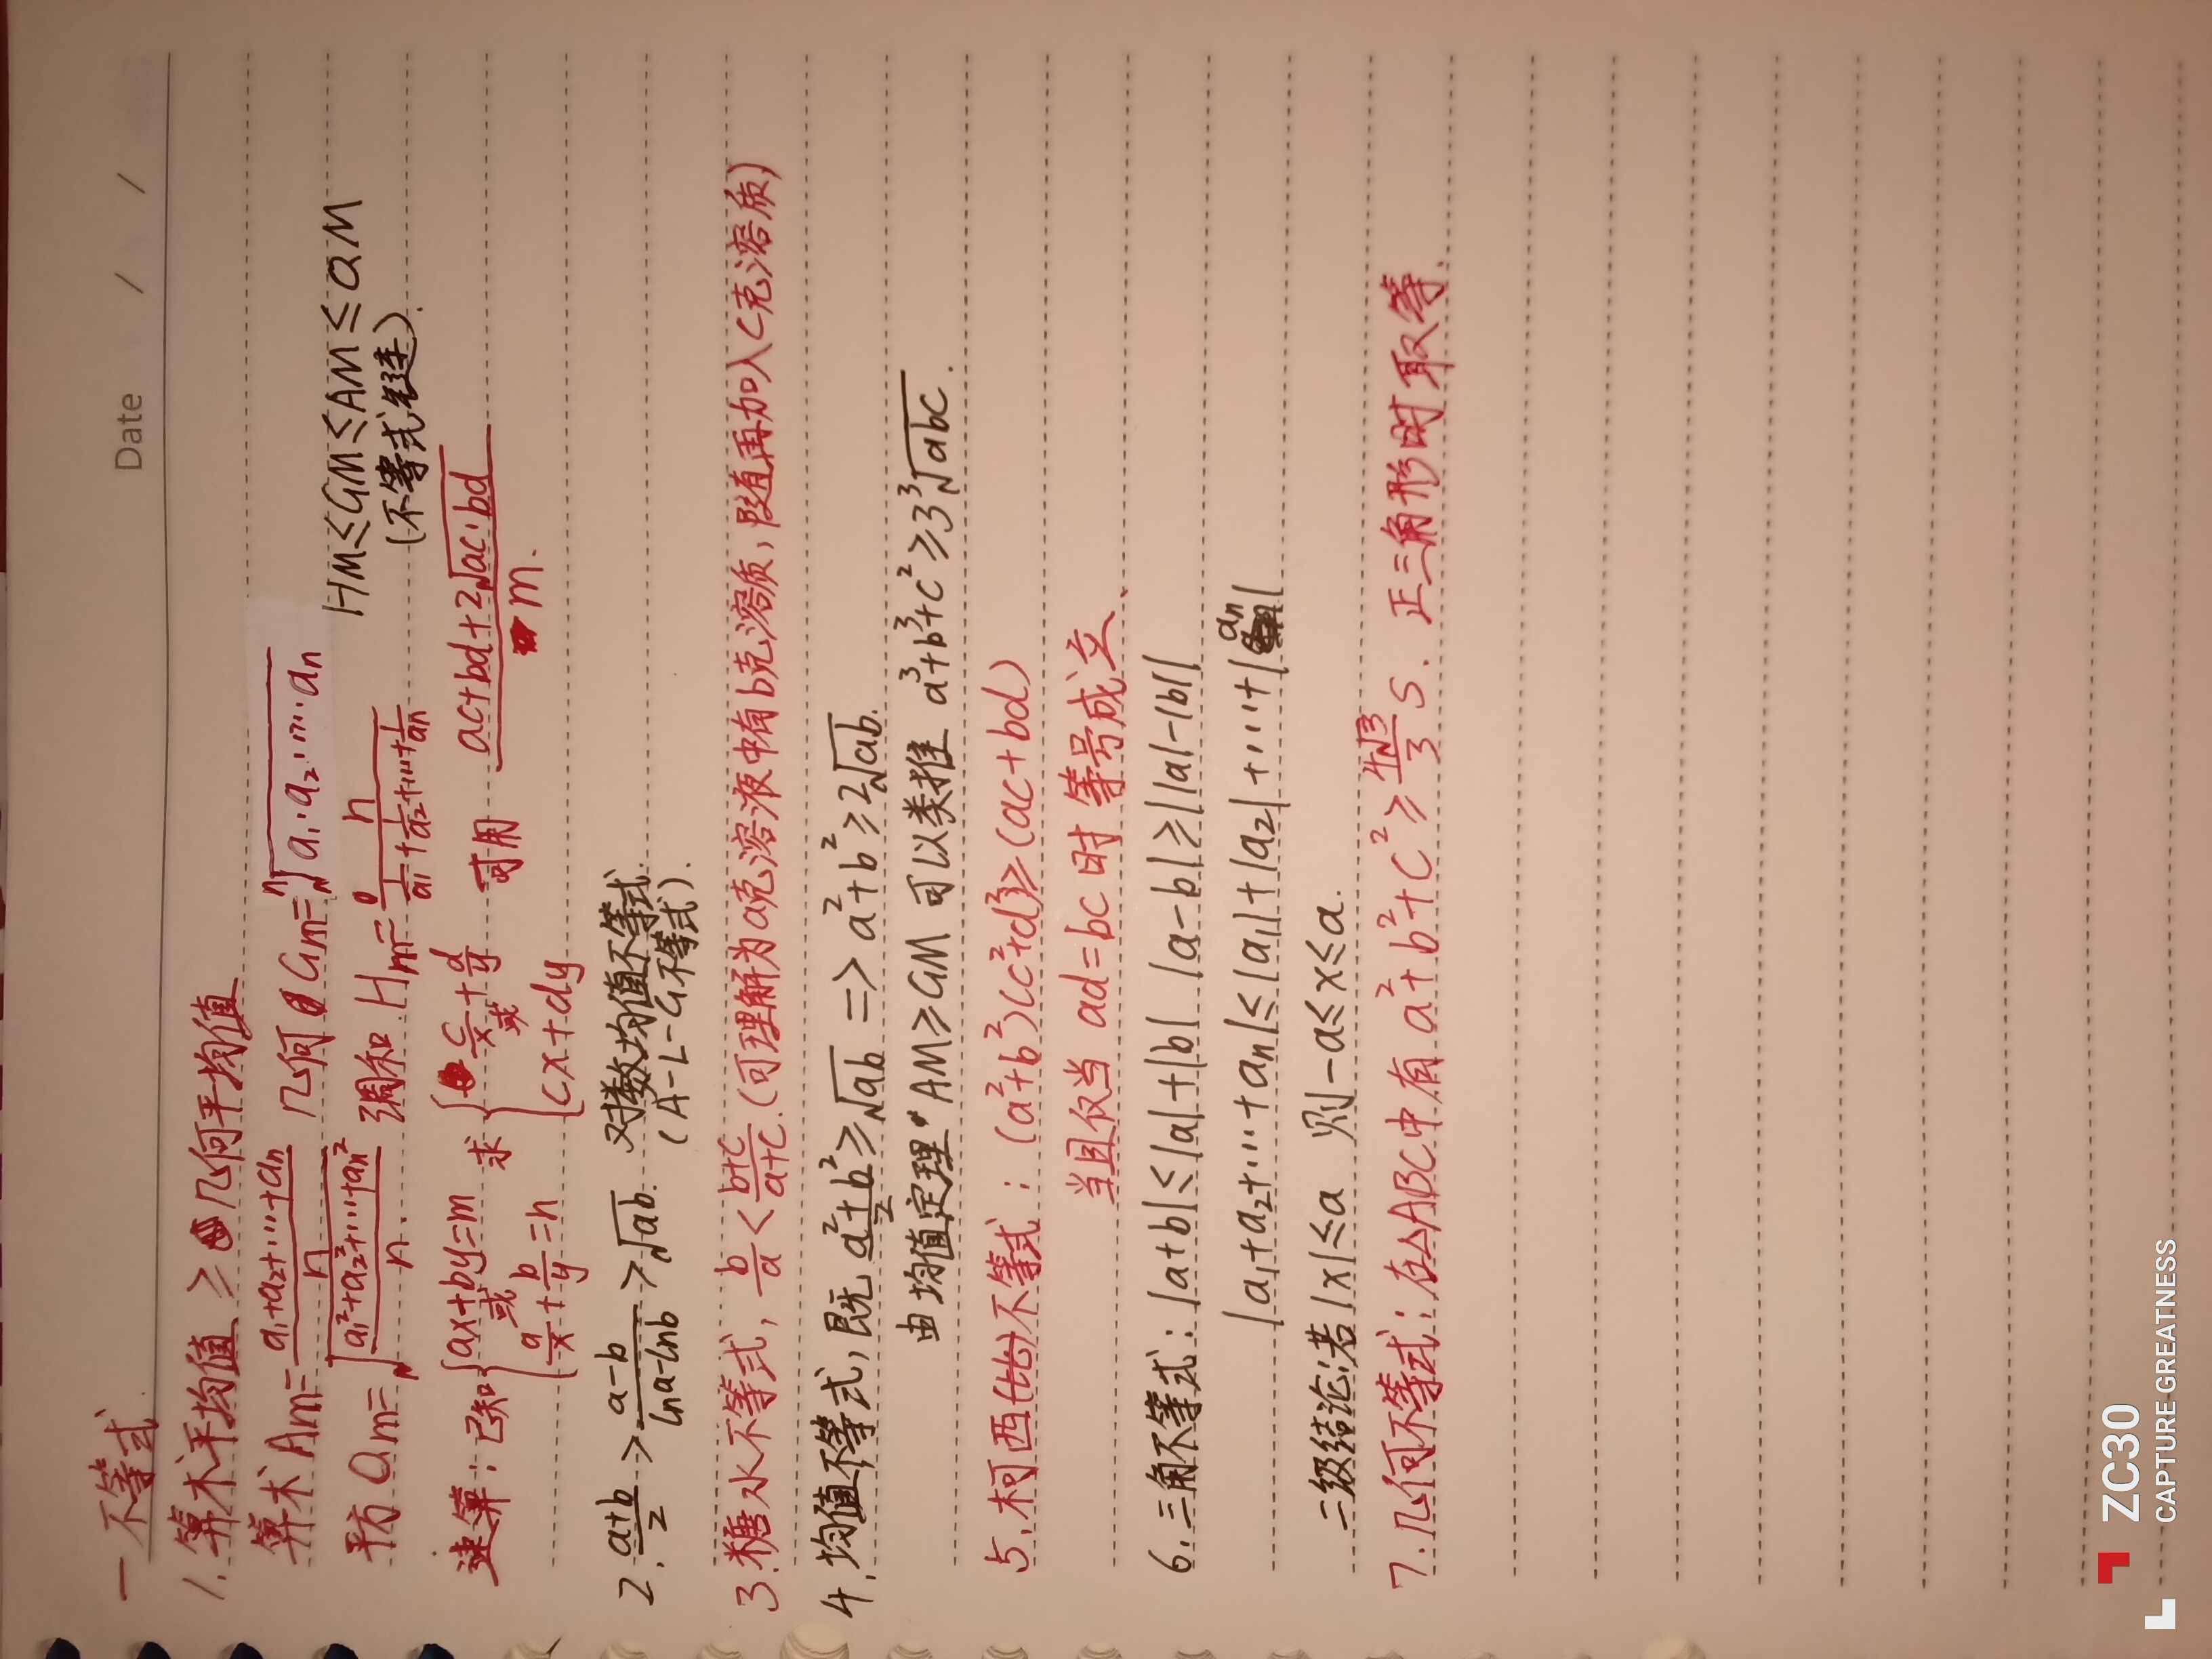 Date / /
一 不等式
1. 算术平均值 ≥ 几何平均值
算术 Am= (a₁+a₂+···+an)/n 几何 Gm= ⁿ√(a₁·a₂·····an)
平方 Qm= √((a₁²+a₂²+····+an²)/n). 调和 Hm= n/(1/a₁+1/a₂+···+1/an) HM≤GM≤AM≤QM
(不等式链).
速算：已知 {ax+by=m 或 a/x+b/y=n 求 {c/x+d/y 或 cx+dy 可用 (ac+bd+2√(ac·bd))/m.
2. (a+b)/2 > (a-b)/(lna-lnb) > √ab. 对数均值不等式.
(A-L-G不等式).
3. 糖水不等式, b/a < (b+c)/(a+c). (可理解为a克溶液中有b克溶质, 随直再加入c克溶质)
4. 均值不等式, 既 (a²+b²)/2 ≥ √ab => a²+b² ≥ 2√ab.
由均值定理 AM≥GM 可以类推 a³+b³+c² ≥ 3³√abc.
5. 柯西不等式：(a²+b²)(c²+d²)≥(ac+bd)
当且仅当 ad=bc 时 等号成立、
6. 三角不等式：|a+b|≤|a|+|b| |a-b|≥||a|-|b||
|a₁+a₂+···+an|≤|a₁|+|a₂|+····+|an|
二级结论:若|x|≤a 则-a≤x≤a.
7. 几何不等式：在△ABC中有 a²+b²+c² ≥ (4√3)/3 S. 正三角形时取等.
ZC30
CAPTURE GREATNESS